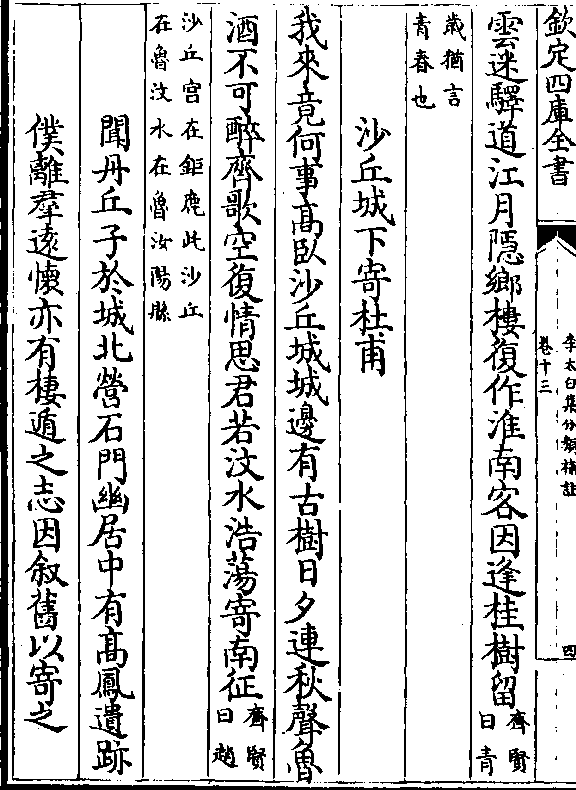 欽定四庫全書
李太白集分類補註
卷十三
四
雲迷驛道江月隱鄉樓復作淮南客因逢桂樹留齊賢
曰青
歲猶言
青春也
沙丘城下寄杜甫
我來竟何事髙臥沙丘城城邊有古樹日夕連秋聲魯
酒不可醉齊歌空復情思君若汶水浩蕩寄南征齊賢
曰趙
沙丘宫在鉅鹿此沙丘
在魯汶水在魯汝陽縣
聞丹丘子於城北營石門幽居中有髙鳳遺跡
僕離羣逺懐亦有棲遁之志因叙舊以寄之